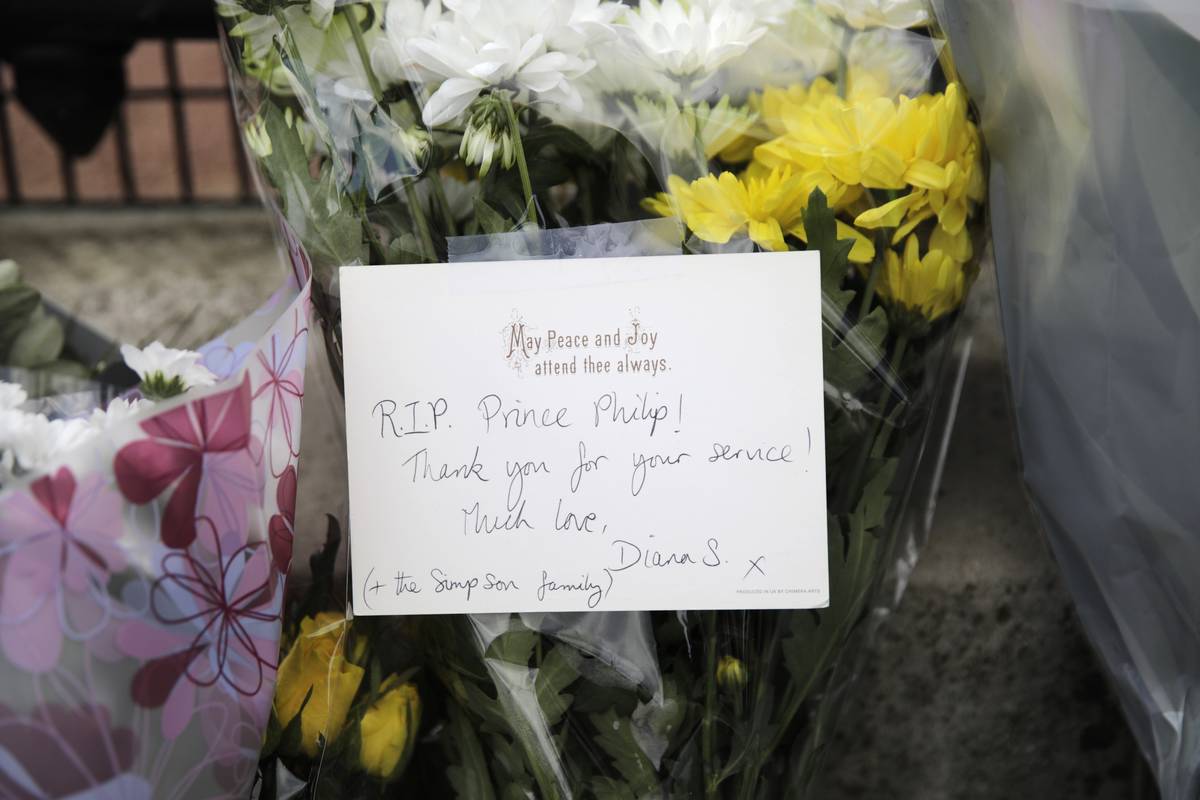 May Peace and Joy
attend thee always.
R.I.P. Prince Philip!
Thank you for your service!
Much love,
Diana S. x
(+ the Simpson family)
PRODUCED IN UK BY CHIMERA ARTS